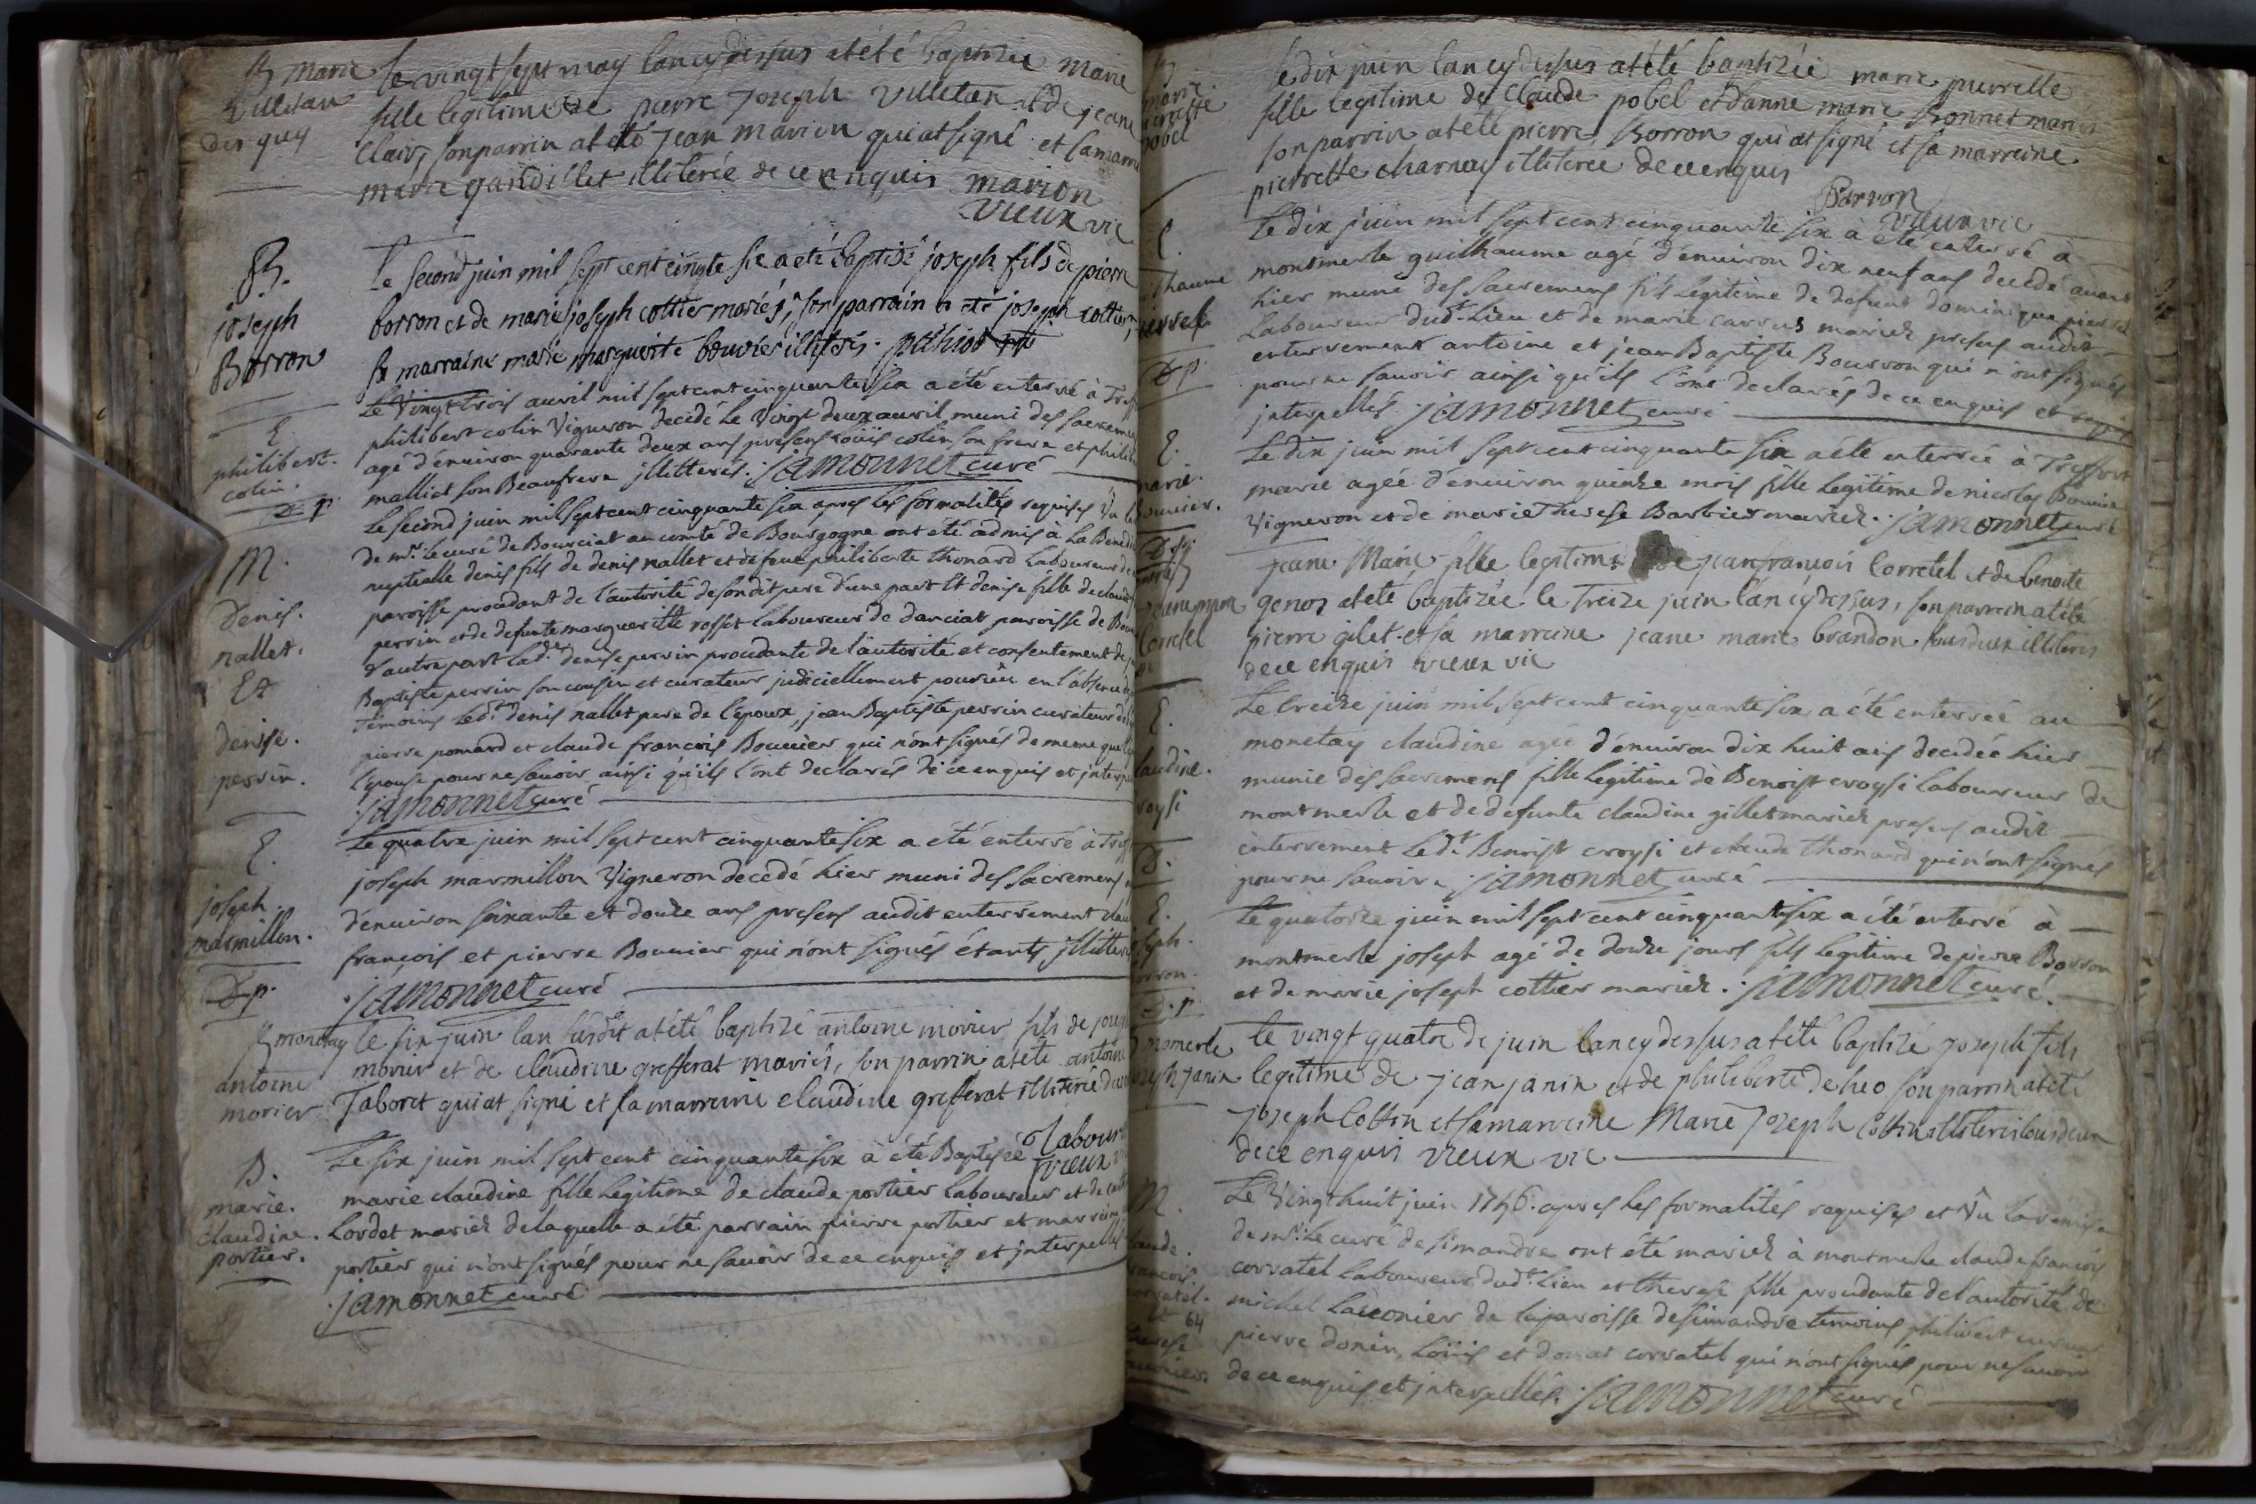 B Marie
Villetan
des guy
le vingt sept may lan cy dessus at été baptizée marie
fille legitime de pierre Joseph Villetan et de jeane
Clair, son parrin at été jean marion qui at signé et sa marrine
marie gandillet illiterée de ce enquis marion
vieux vic
B.
joseph
Borron
Le second juin mil sept cent cinqte six a eté baptisé joseph fils de pierre
borron et de marie joseph cottier mariés, son parrain a eté joseph cottier,
sa marraine marie marguerite bouvier illiterés.
E.
philibert.
colin.
D p.
Le vingt trois avril mil sept cent cinquante six a été enterré à Treff
philibert colin Vigneron decédé le vingt deux avril muni des sacremens
agé d'environ quarante deux ans presens Loüis colin son frere et philib
malliet son Beaufrere jllitterés. jamonnet curé
M.
Denis.
nallet.
Et
denise.
perrin.
Le second juin mil sept cent cinquante six apres les formalités requises Vu le
de mr. le curé de Bourciat au comté de Bourgogne ont etés admis à la Benedi
nuptialle denis fils de denis nallet et de feue philiberte thomard Laboureur de
paroisse procedant de l'autorité de son dit pere d'une part Et denise fille de claude
perrin et de defunte margueritte rosset laboureur de danciat paroisse de Bour
d'autre part lad.te denise perrin procedante de l'autorité et consentement de j
Baptiste perrin son cousin et curateur judiciellement pourvûe en l'absence de
Temoins led.t denis nallet pere de l'epoux, jean Baptiste perrin curateur de
pierre pomard et claude françois Bouvier qui n'ont signés de meme que
l'epouse pour ne savoir ainsi qu'ils l'ont declarés de ce enquis et interp
jamonnet curé
E.
joseph.
marmillon.
D p.
Le quatre juin mil sept cent cinquante six a été enterré à Treff
joseph marmillon Vigneron decédé hier muni des sacremens
d'environ soixante et douze ans presens audit enterrement clau
françois et pierre Bouvier qui n'ont signés étants jlliteré
jamonnet curé
B monetay
antoine
morier
le six juin lan susdit at été baptizé antoine morier fils de
morier et de claudine grefferat mariés, son parrin at été antoine
Taboret qui at signé et sa marreine claudine grefferat illiterée
Tabour
vieux
B.
marie.
claudine.
portier.
Le six juin mil sept cent cinquante six à été Baptisée
marie claudine fille legitime de claude portier laboureur et de
Lordet mariez de laquelle a été parrain pierre portier et marreine
portier qui n'ont signés pour ne savoir de ce enquis et jnterpellés
jamonnet curé
B
marie
pobel
le dix juin lan cy dessus at été baptizée marie pierrette
fille legitime de Claude pobel et d'anne marie Bonnet mariés
son parrin at été pierre Borron qui at signé et sa marreine
pierrette charnay illiterée de ce enquis
Borron
vieux vic
E.
D p.
Le dix juin mil sept cent cinquante six à été enterré à
montmerle guilhaume agé d'environ dix neuf ans decedé avant
hier muni des sacremens fils legitime de defunt dominique pierrel
Laboureur dud.t lieu et de marie carrus mariez presens audit
enterrement antoine et jean Baptiste Bourron qui n'ont signés
pour ne savoir ainsi qu'ils l'ont declarés de ce enquis et
interpellés. jamonnet curé
E.
marie.
bouvier.
Le dix juin mil sept cent cinquante six a été enterrée à Treffort
marie agée d'environ quinze mois fille legitime de nicolas Bouvier
Vigneron et de marie Therese Barbier mariez. jamonnet curé
Corretel
jeane Marie fille legitime de jean françois Corretel et de benoite
genos at été baptizée le treize juin lan cy dessus, son parrein at été
pierre gilet et sa marreine jeane marie brandon tous deux illiterés
de ce enquis vieux vic
E.
laudine.
roysi
D.
Le treize juin mil sept cent cinquante six a été enterrée au
monetay claudine agée d'environ dix huit ans decedée hier
munie des sacremens fille legitime de Benoist croysi laboureur de
montmerle et de defunte claudine gillet mariez presens audit
enterrement led.t Benoist croysi et claude thomard qui n'ont signés
pour ne savoir. jamonnet curé
E.
oseph.
orron.
D. p
Le quatorze juin mil sept cent cinquante six a été enterré à
montmerle joseph agé de douze jours fils legitime de pierre Borron
et de marie joseph cottier mariez. jamonnet curé.
B momerle
joseph janin
le vingt quatre de juin lan cy dessus at été baptizé joseph fils
legitime de jean janin et de philiberte deheo son parrin at été
joseph Cottin et sa marreine Marie Joseph Cottin illiterés tous deux
de ce enquis vieux vic
M.
laude.
rancois
orratel.
et 64
therese
Le Vingt huit juin 1756. apres les formalités requises et Vû la remise
de mr. le curé de simandre ont été mariez à montmerle claude françois
corratel laboureur dud.t lieu et therese fille procedante de l'autorité de
michel laconier de la paroisse de simandre temoins philibert
pierre donin, Loüis et donat corratel qui n'ont signés pour ne savoir
de ce enquis et jnterpellés. jamonnet curé